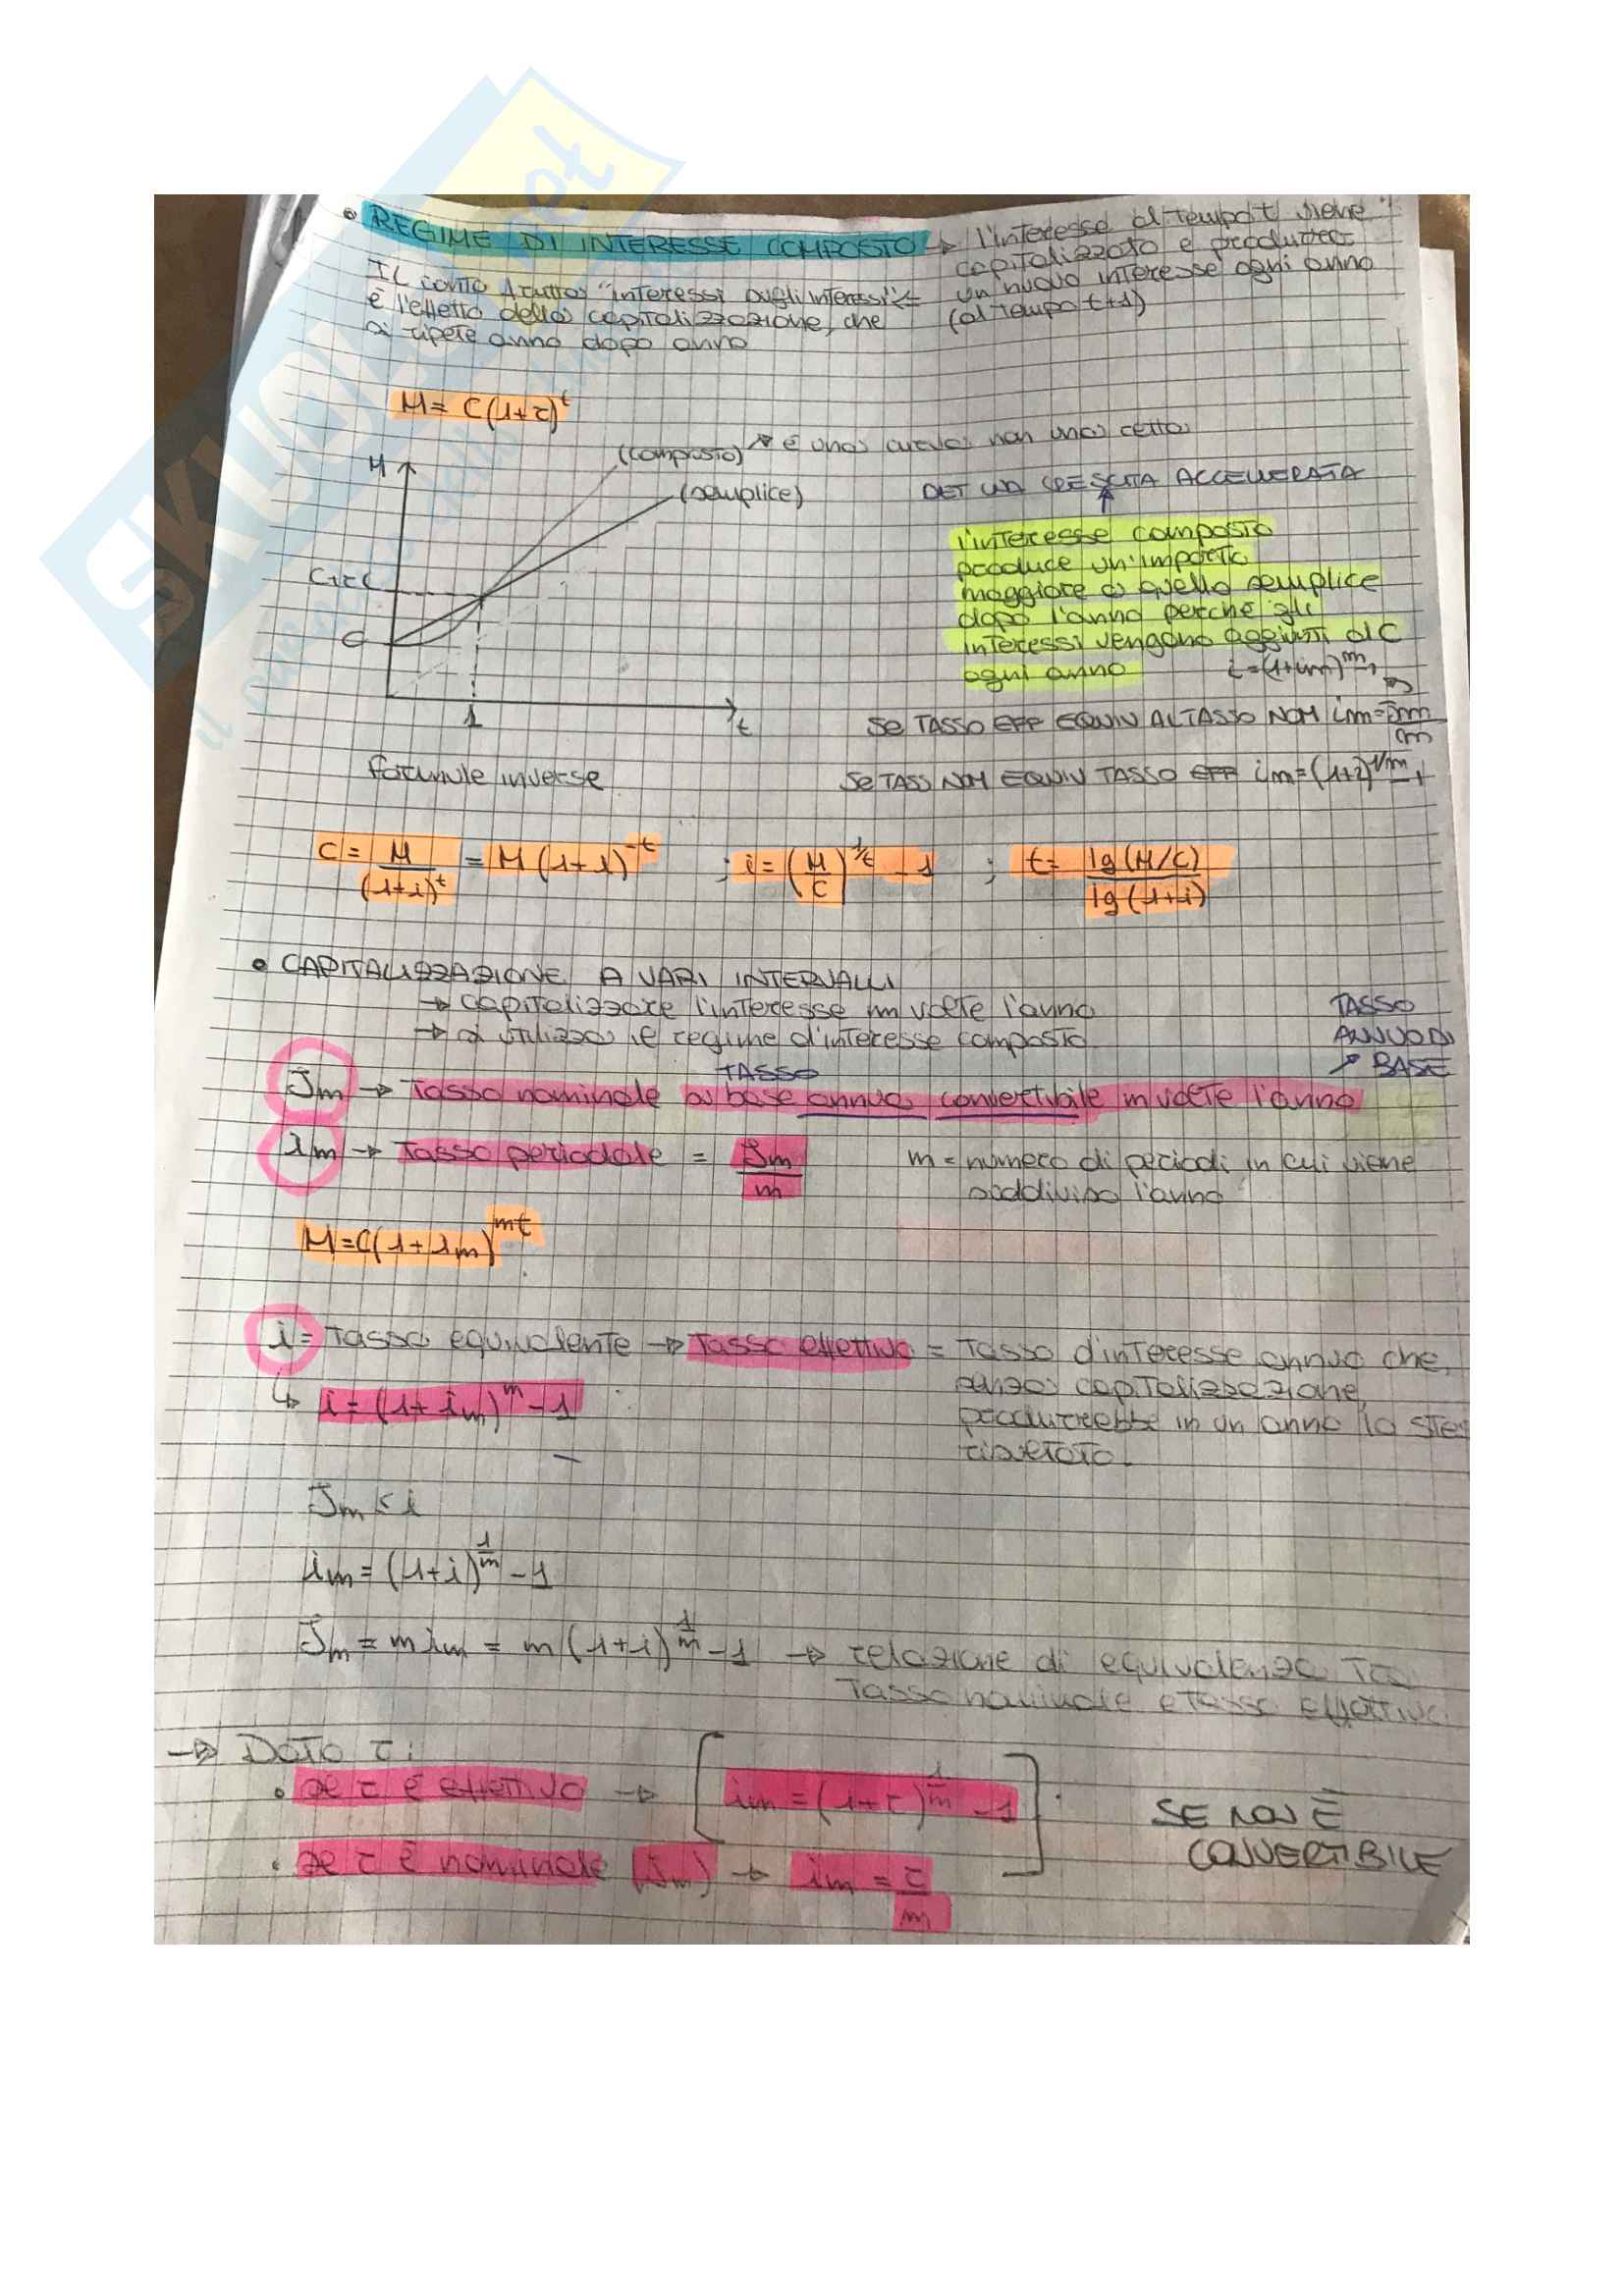 • REGIME DI INTERESSE COMPOSTO → l'interesse al tempo t viene
capitalizzato e produrrà
un nuovo interesse ogni anno
(al tempo t+1)
Il conto frutta "interessi sugli interessi" ←
è l'effetto della capitalizzazione, che
si ripete anno dopo anno
M = C(1+r)^t
(composto) → è una curva non una retta
M
(semplice)
DET UNA CRESCITA ACCELLERATA
l'interesse composto
produce un importo
maggiore a quello semplice
dopo l'anno perchè gli
interessi vengono aggiunti al C
ogni anno
C+rC
C
1
t
i = (1+im)^m -1
SE TASSO EFF EQUIV AL TASSO NOM im = Jm/m
formule inverse
SE TASS NOM EQUIV TASSO EFF im = (1+i)^1/m - 1
C = M/(1+i)^t = M(1+i)^-t ; i = (M/C)^1/t - 1 ; t = lg(M/C)/lg(1+i)
• CAPITALIZZAZIONE A VARI INTERVALLI
→ capitalizzare l'interesse m volte l'anno
→ si utilizza il regime d'interesse composto
TASSO
ANNUO DI
BASE
TASSO
Jm → Tasso nominale su base annua convertibile m volte l'anno
im → Tasso periodale = Jm/m
m = numero di periodi in cui viene
suddiviso l'anno
M = C(1+im)^mt
i = Tasso equivalente → Tasso effettivo = Tasso d'interesse annuo che,
senza capitalizzazione,
produrrebbe in un anno lo stes
risultato.
↳ i = (1+im)^m - 1
Jm < i
im = (1+i)^1/m - 1
Jm = m im = m(1+i)^1/m - 1 → relazione di equivalenza tra
Tasso nominale e Tasso effettivo
→ Dato r:
• se r è effettivo → [im = (1+r)^1/m - 1]
• se r è nominale (Jm) → im = r/m
SE NON È
CONVERTIBILE
SKUOLA.net